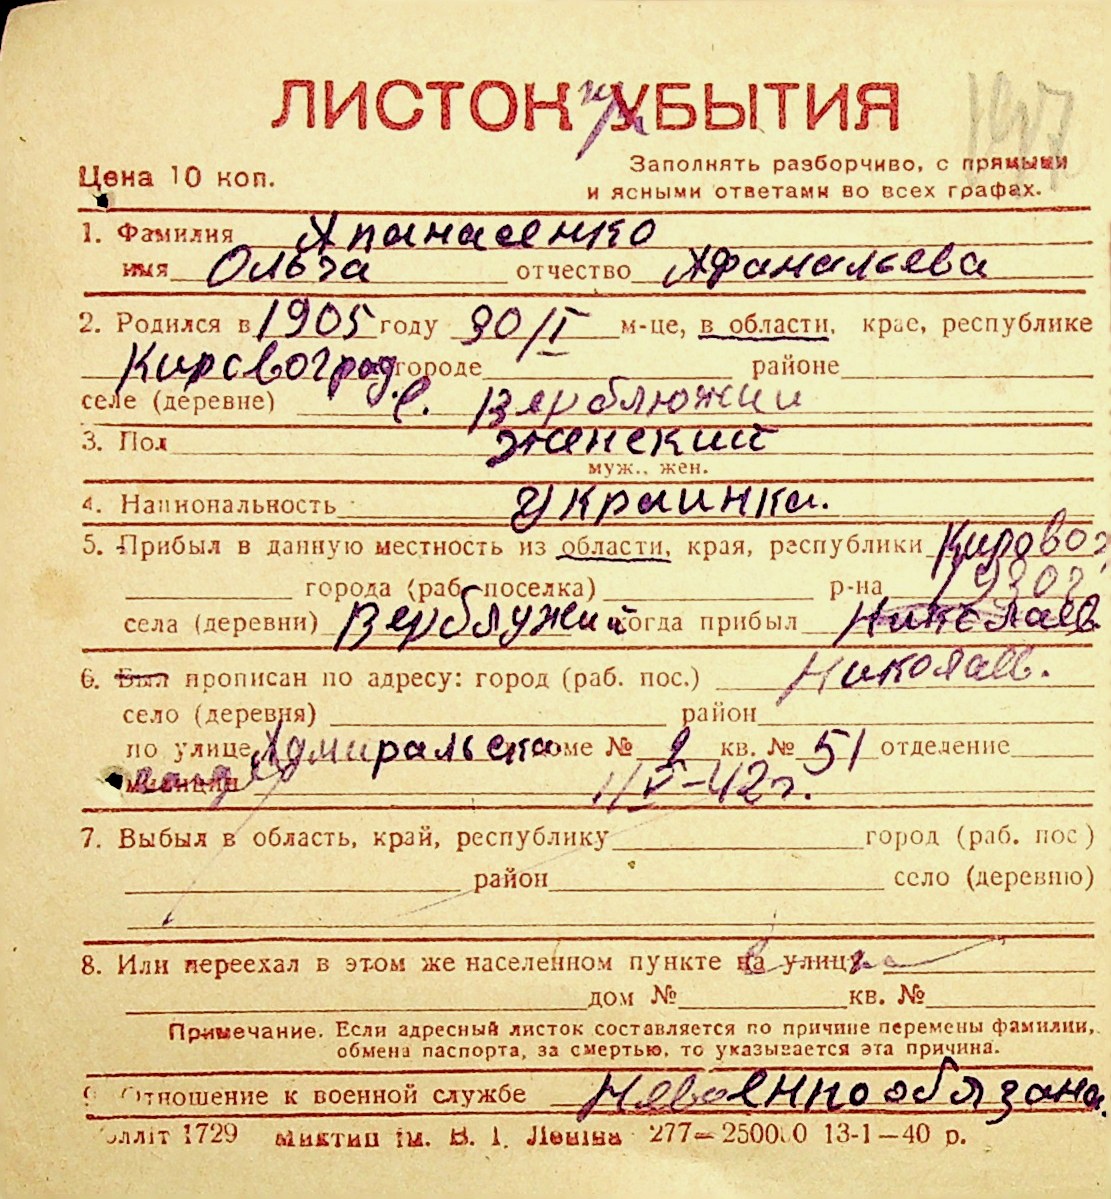 ЛИСТОК УБЫТИЯ
Цена 10 коп.
Заполнять разборчиво, с прямыми
и ясными ответами во всех графах.
1. Фамилия Апанасенко
имя Ольга отчество Афанасьева
2. Родился в 1905 году 30/I м-це, в области, крае, республике
Кировоград городе районе
селе (деревне) с. Верблюжии
3. Пол женский
муж., жен.
4. Национальность украинка.
5. Прибыл в данную местность из области, края, республики Кировог
города (раб. поселка) р-на 1930г
села (деревни) Верблужий когда прибыл Николаев
6. Был прописан по адресу: город (раб. пос.) Николаев.
село (деревня) район
по улице Адмиральска доме № 2 кв. № 51 отделение
милиции 1/V-42г.
7. Выбыл в область, край, республику город (раб. пос)
район село (деревню)
8. Или переехал в этом же населенном пункте на улицу
дом № кв. №
Примечание. Если адресный листок составляется по причине перемены фамилии,
обмена паспорта, за смертью, то указывается эта причина.
9. Отношение к военной службе Невоеннообязана.
1729 ім. В. І. Леніна 277—25000 13-1—40 р.